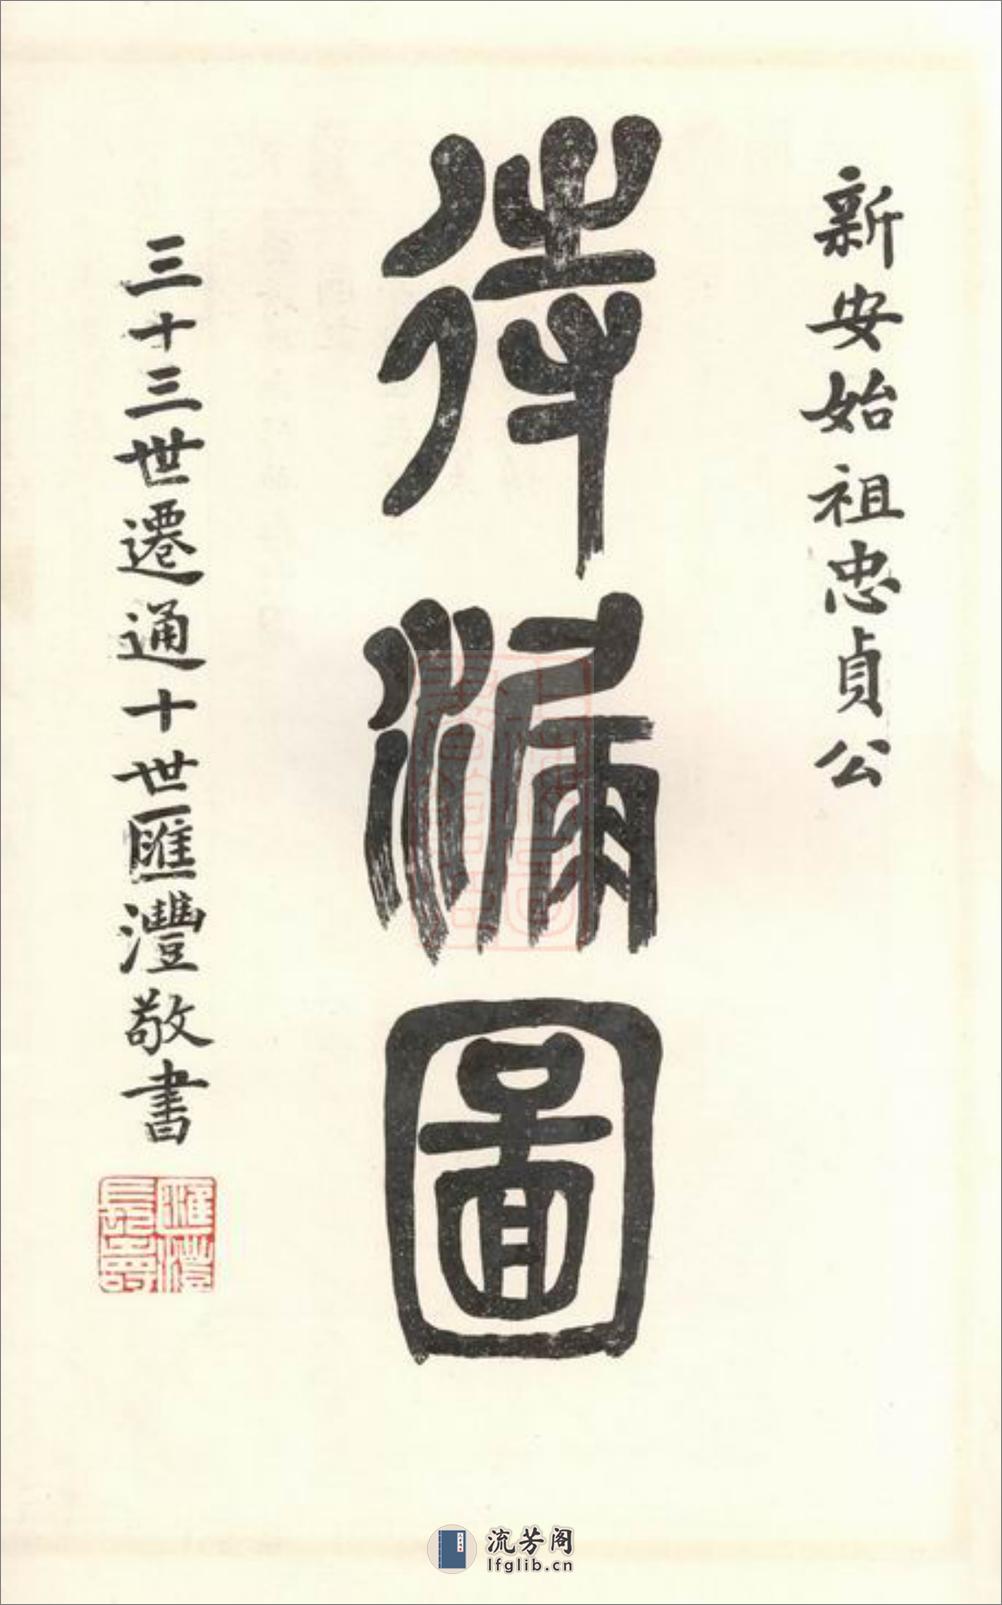 新安始祖忠貞公
待漏圖
三十三世遷通十世匯灃敬書
匯灃
長壽
流芳阁
lfglib.cn